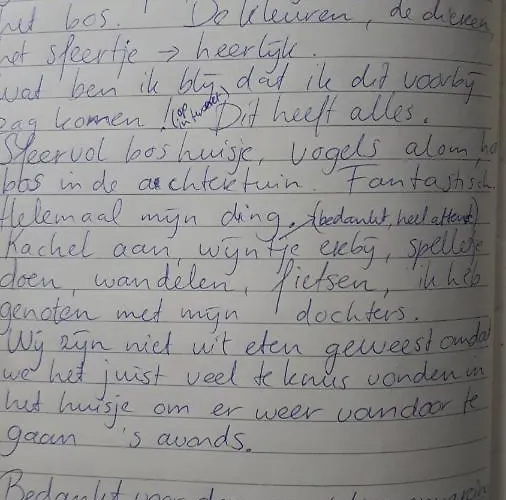 het bos. De kleuren, de dieren,
het sfeertje → heerlijk.
wat ben ik blij dat ik dit voorbij
zag komen! (op internet) Dit heeft alles.
Sfeervol boshuisje, vogels alom, 
bos in de achtertuin. Fantastisch
Helemaal mijn ding. (bedankt, heel attent)
Kachel aan, wijntje erbij, spelletje
doen, wandelen, fietsen, ik heb
genoten met mijn dochters.
Wij zijn niet uit eten geweest omdat
we het juist veel te knus vonden in
het huisje om er weer vandoor te
gaan 's avonds.
Bedankt voor